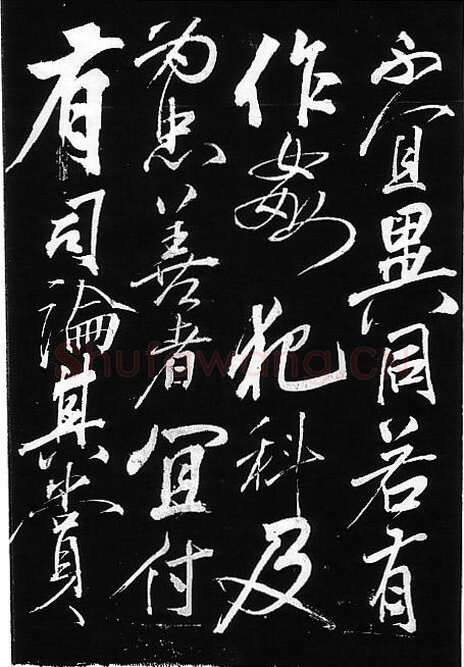 不宜異同若有
作姦犯科及
為忠善者宜付
有司論其刑賞